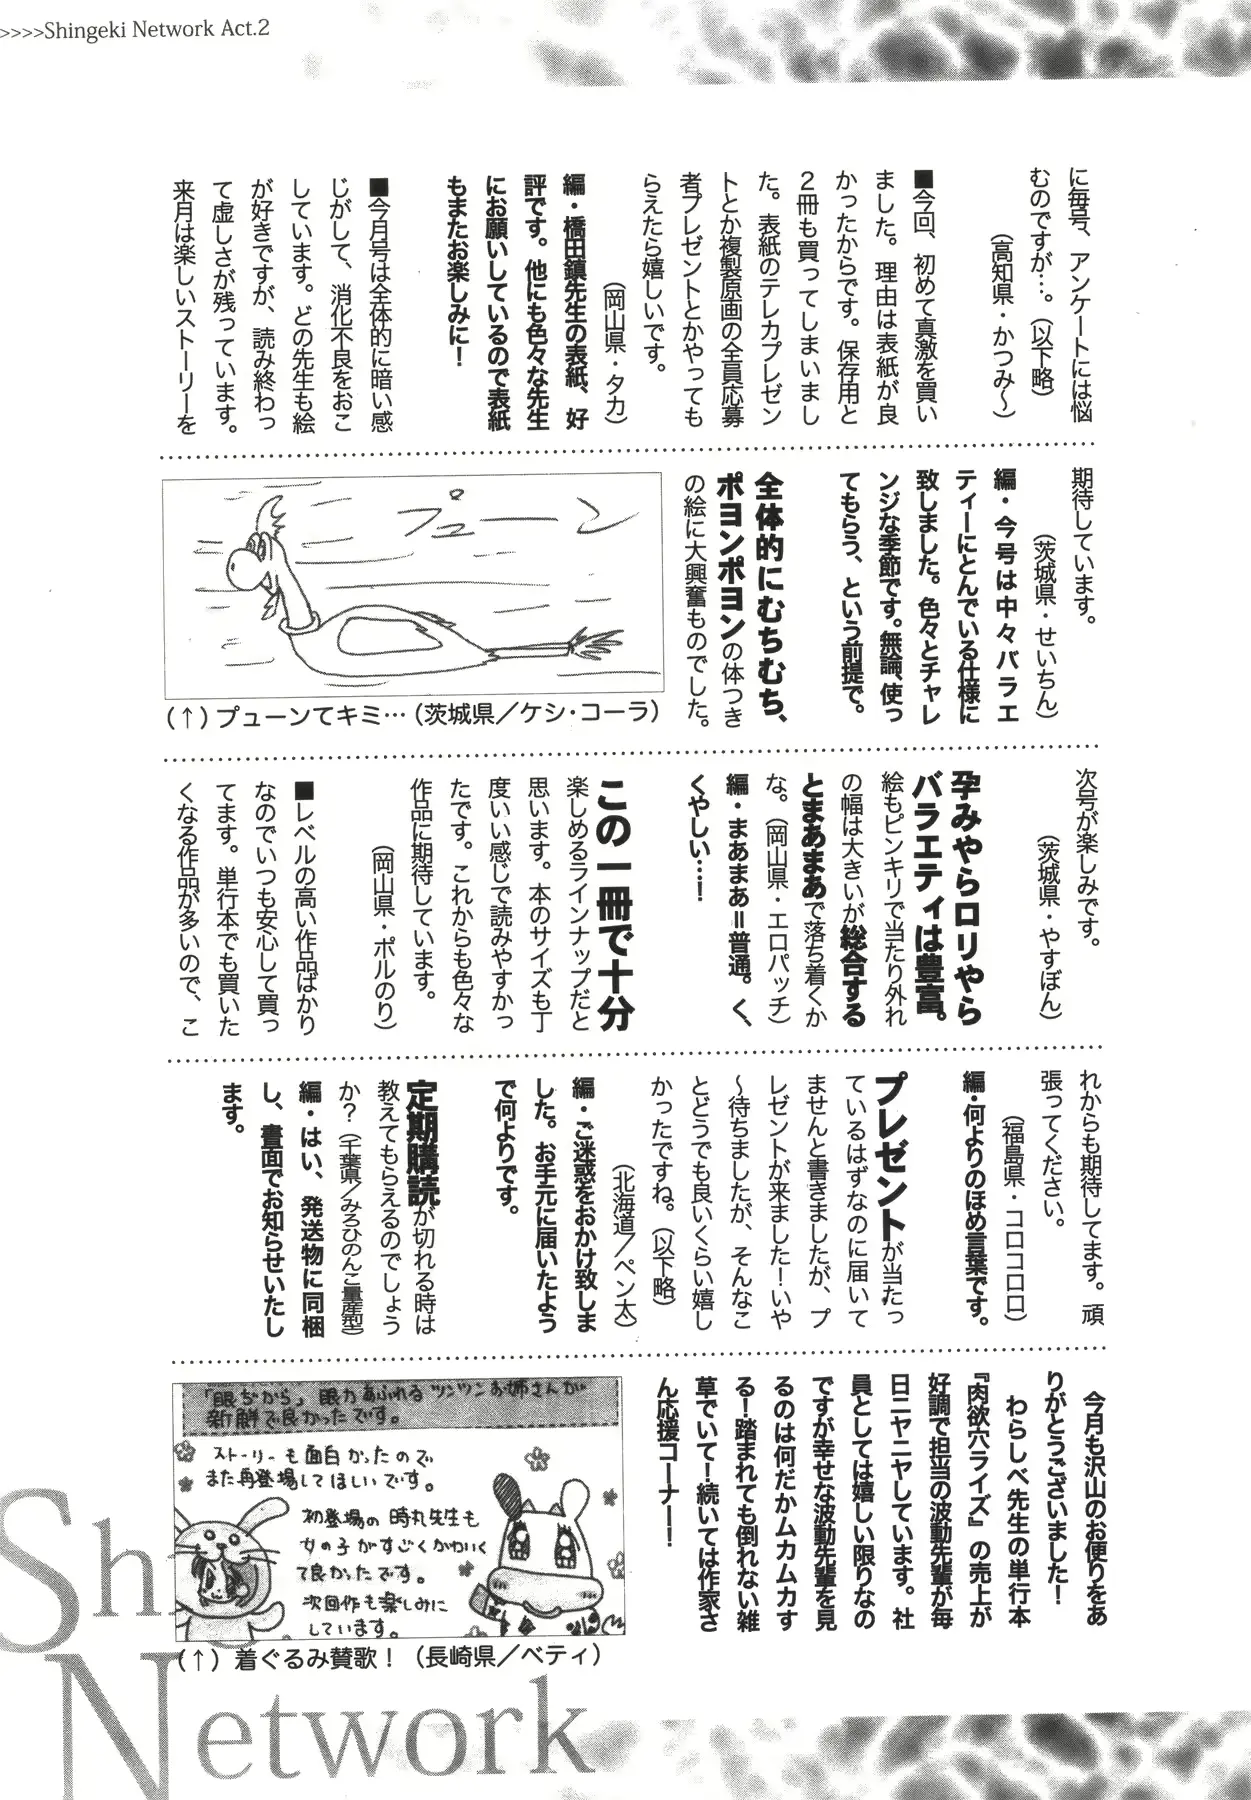 >>>>Shingeki Network Act.2
に毎号、アンケートには悩
むのですが…。（以下略）
（高知県・かつみ～）
■今回、初めて真激を買い
ました。理由は表紙が良
かったからです。保存用と
2冊も買ってしまいまし
た。表紙のテレカプレゼン
トとか複製原画の全員応募
者プレゼントとかやっても
らえたら嬉しいです。
（岡山県・タカ）
編・橋田鎮先生の表紙、好
評です。他にも色々な先生
にお願いしているので表紙
もまたお楽しみに！
■今月号は全体的に暗い感
じがして、消化不良をおこ
しています。どの先生も絵
が好きですが、読み終わっ
て虚しさが残っています。
来月は楽しいストーリーを
期待しています。
（茨城県・せいちん）
編・今号は中々バラエ
ティーにとんでいる仕様に
致しました。色々とチャレ
ンジな季節です。無論、使っ
てもらう、という前提で。
全体的にむちむち、
ポヨンポヨンの体つき
の絵に大興奮ものでした。
プューン
（↑）プューンてキミ…（茨城県／ケシ・コーラ）
次号が楽しみです。
（茨城県・やすぼん）
孕みやらロリやら
バラエティは豊富。
絵もピンキリで当たり外れ
の幅は大きいが総合する
とまあまあで落ち着くか
な。（岡山県・エロパッチ）
編・まあまあ＝普通。く、
くやしい…！
この一冊で十分
楽しめるラインナップだと
思います。本のサイズも丁
度いい感じで読みやすかっ
たです。これからも色々な
作品に期待しています。
（岡山県・ポルのり）
■レベルの高い作品ばかり
なのでいつも安心して買っ
てます。単行本でも買いた
くなる作品が多いので、こ
れからも期待してます。頑
張ってください。
（福島県・コロコロロロ）
編・何よりのほめ言葉です。
プレゼントが当たっ
ているはずなのに届いて
ませんと書きましたが、プ
レゼントが来ました！いや
～待ちましたが、そんなこ
とどうでも良いくらい嬉し
かったですね。（以下略）
（北海道／ペン太）
編・ご迷惑をおかけ致しま
した。お手元に届いたよう
で何よりです。
定期購読が切れる時は
教えてもらえるのでしょう
か？（千葉県／みろひのんこ量産型）
編・はい、発送物に同梱
し、書面でお知らせいたし
ます。
今月も沢山のお便りをあ
りがとうございました！
わらしべ先生の単行本
『肉欲穴ライズ』の売上が
好調で担当の波動先輩が毎
日ニヤニヤしています。社
員としては嬉しい限りなの
ですが幸せな波動先輩を見
るのは何だかムカムカす
る！踏まれても倒れない雑
草でいて！続いては作家さ
ん応援コーナー！
「眼ぢから」眼力あふれるツンツンお姉さんが
新鮮で良かったです。
ストーリーも面白かったので
また再登場してほしいです。
初登場の時丸先生も
女の子がすごくかわいく
て良かったです。
次回作も楽しみに
しています。
（↑）着ぐるみ賛歌！（長崎県／ベティ）
Sh
Network